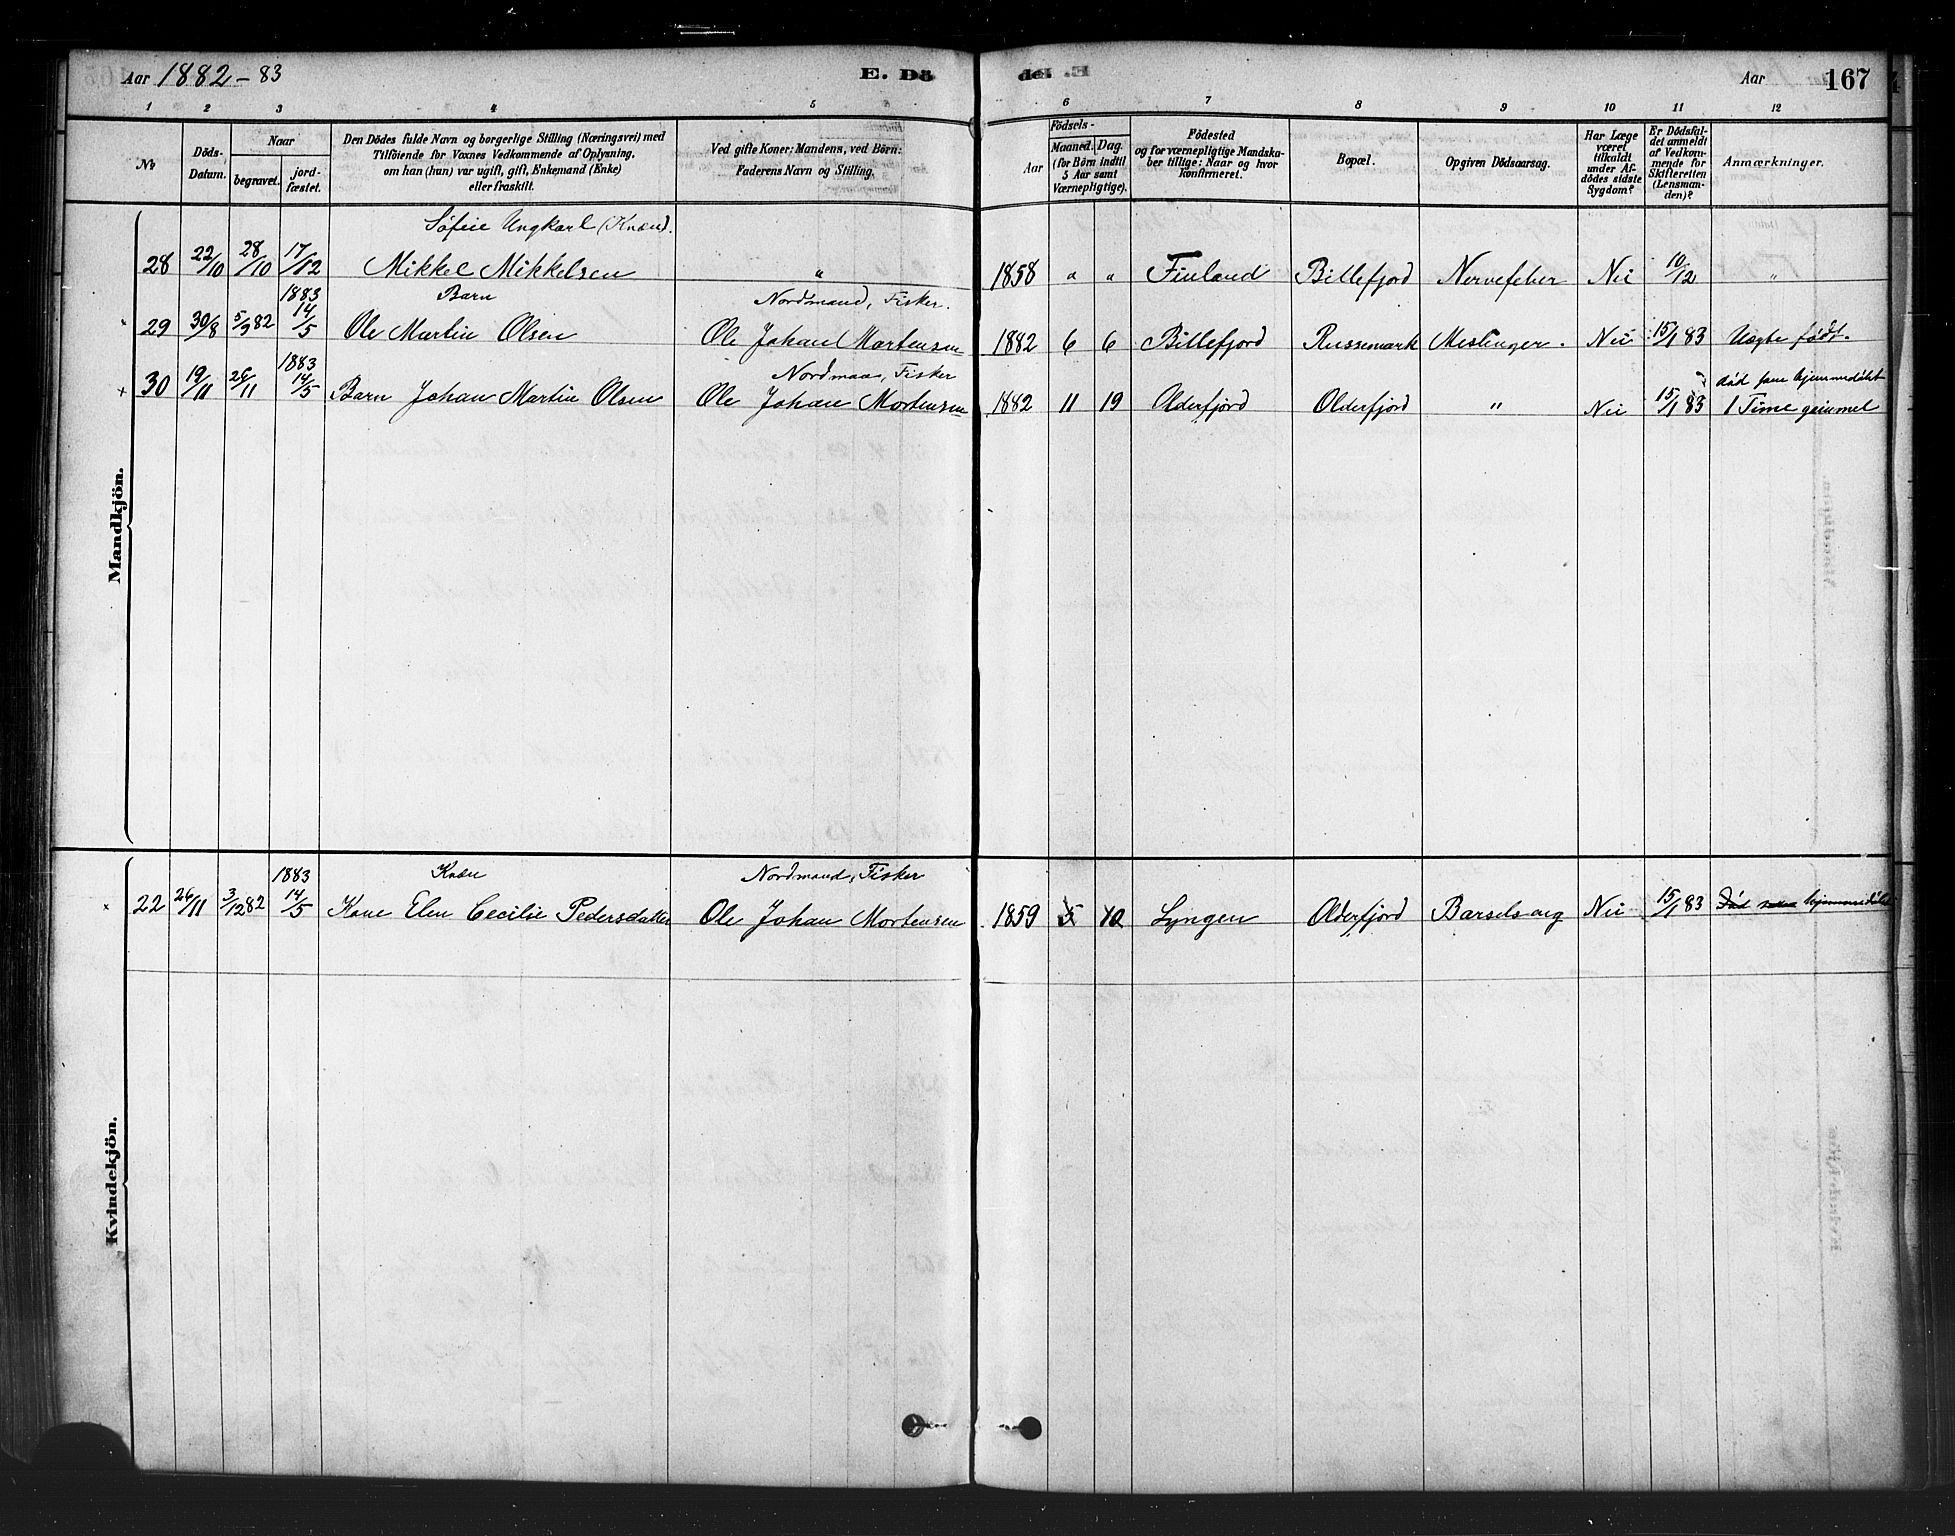 Aar 1882-83
E. Dö
de. E.
Aar 167
1 2 3 4 5 6 7 8 9 10 11 12
No
Döds-Datum.
Naar
begravet.
jord-fæstet.
Den Dödes fulde Navn og borgerlige Stilling (Næringsvei) med
Tilföiende for Voxnes Vedkommende af Oplysning,
om han (hun) var ugift, gift, Enkemand (Enke)
eller fraskilt.
Ved gifte Koner: Mandens, ved Börn:
Faderens Navn og Stilling.
Aar
Födsels-
Maaned. Dag.
(for Börn indtil
5 Aar samt
Værnepligtige).
Födested
og for værnepligtige Mandska-
ber tillige: Naar og hvor
konfirmeret.
Bopæl.
Opgiven Dödsaarsag.
Har Læge
været
tilkaldt
under Af-
dödes sidste
Sygdom?
Er Dödsfal-
det anmeldt
af Vedkom-
mende for
Skifteretten
(Lensman-
den)?
Anmærkninger.
Mandkjön.
Ungkarl (Kvæn).
28 22/10 28/10 17/12 Mikkel Mikkelsen " 1858 " " Finland Billefjord Nervefeber Nei 10/12 "
1883 Barn Nordmand, Fisker.
29 30/8 5/9 82 14/5 Ole Martin Olsen Ole Johan Mortensen 1882 6 6 Billefjord Russemark Meslinger. Nei 15/1 83 Uægte født.
1883 Nordmand, Fisker død hjemmedøbt
30 19/11 26/11 14/5 Barn Johan Martin Olsen Ole Johan Mortensen 1882 11 19 Olderfjord Olderfjord " Nei 15/1 83 1 Time gammel
Kvindekjön.
1883 Kvæn Nordmand, Fisker
22 26/11 3/12 82 14/5 Kone Elen Cecilie Pedersdatter Ole Johan Mortensen 1859 5 Lyngen Olderfjord Barselsang Nei 15/1 83 Død hjemmedøbt